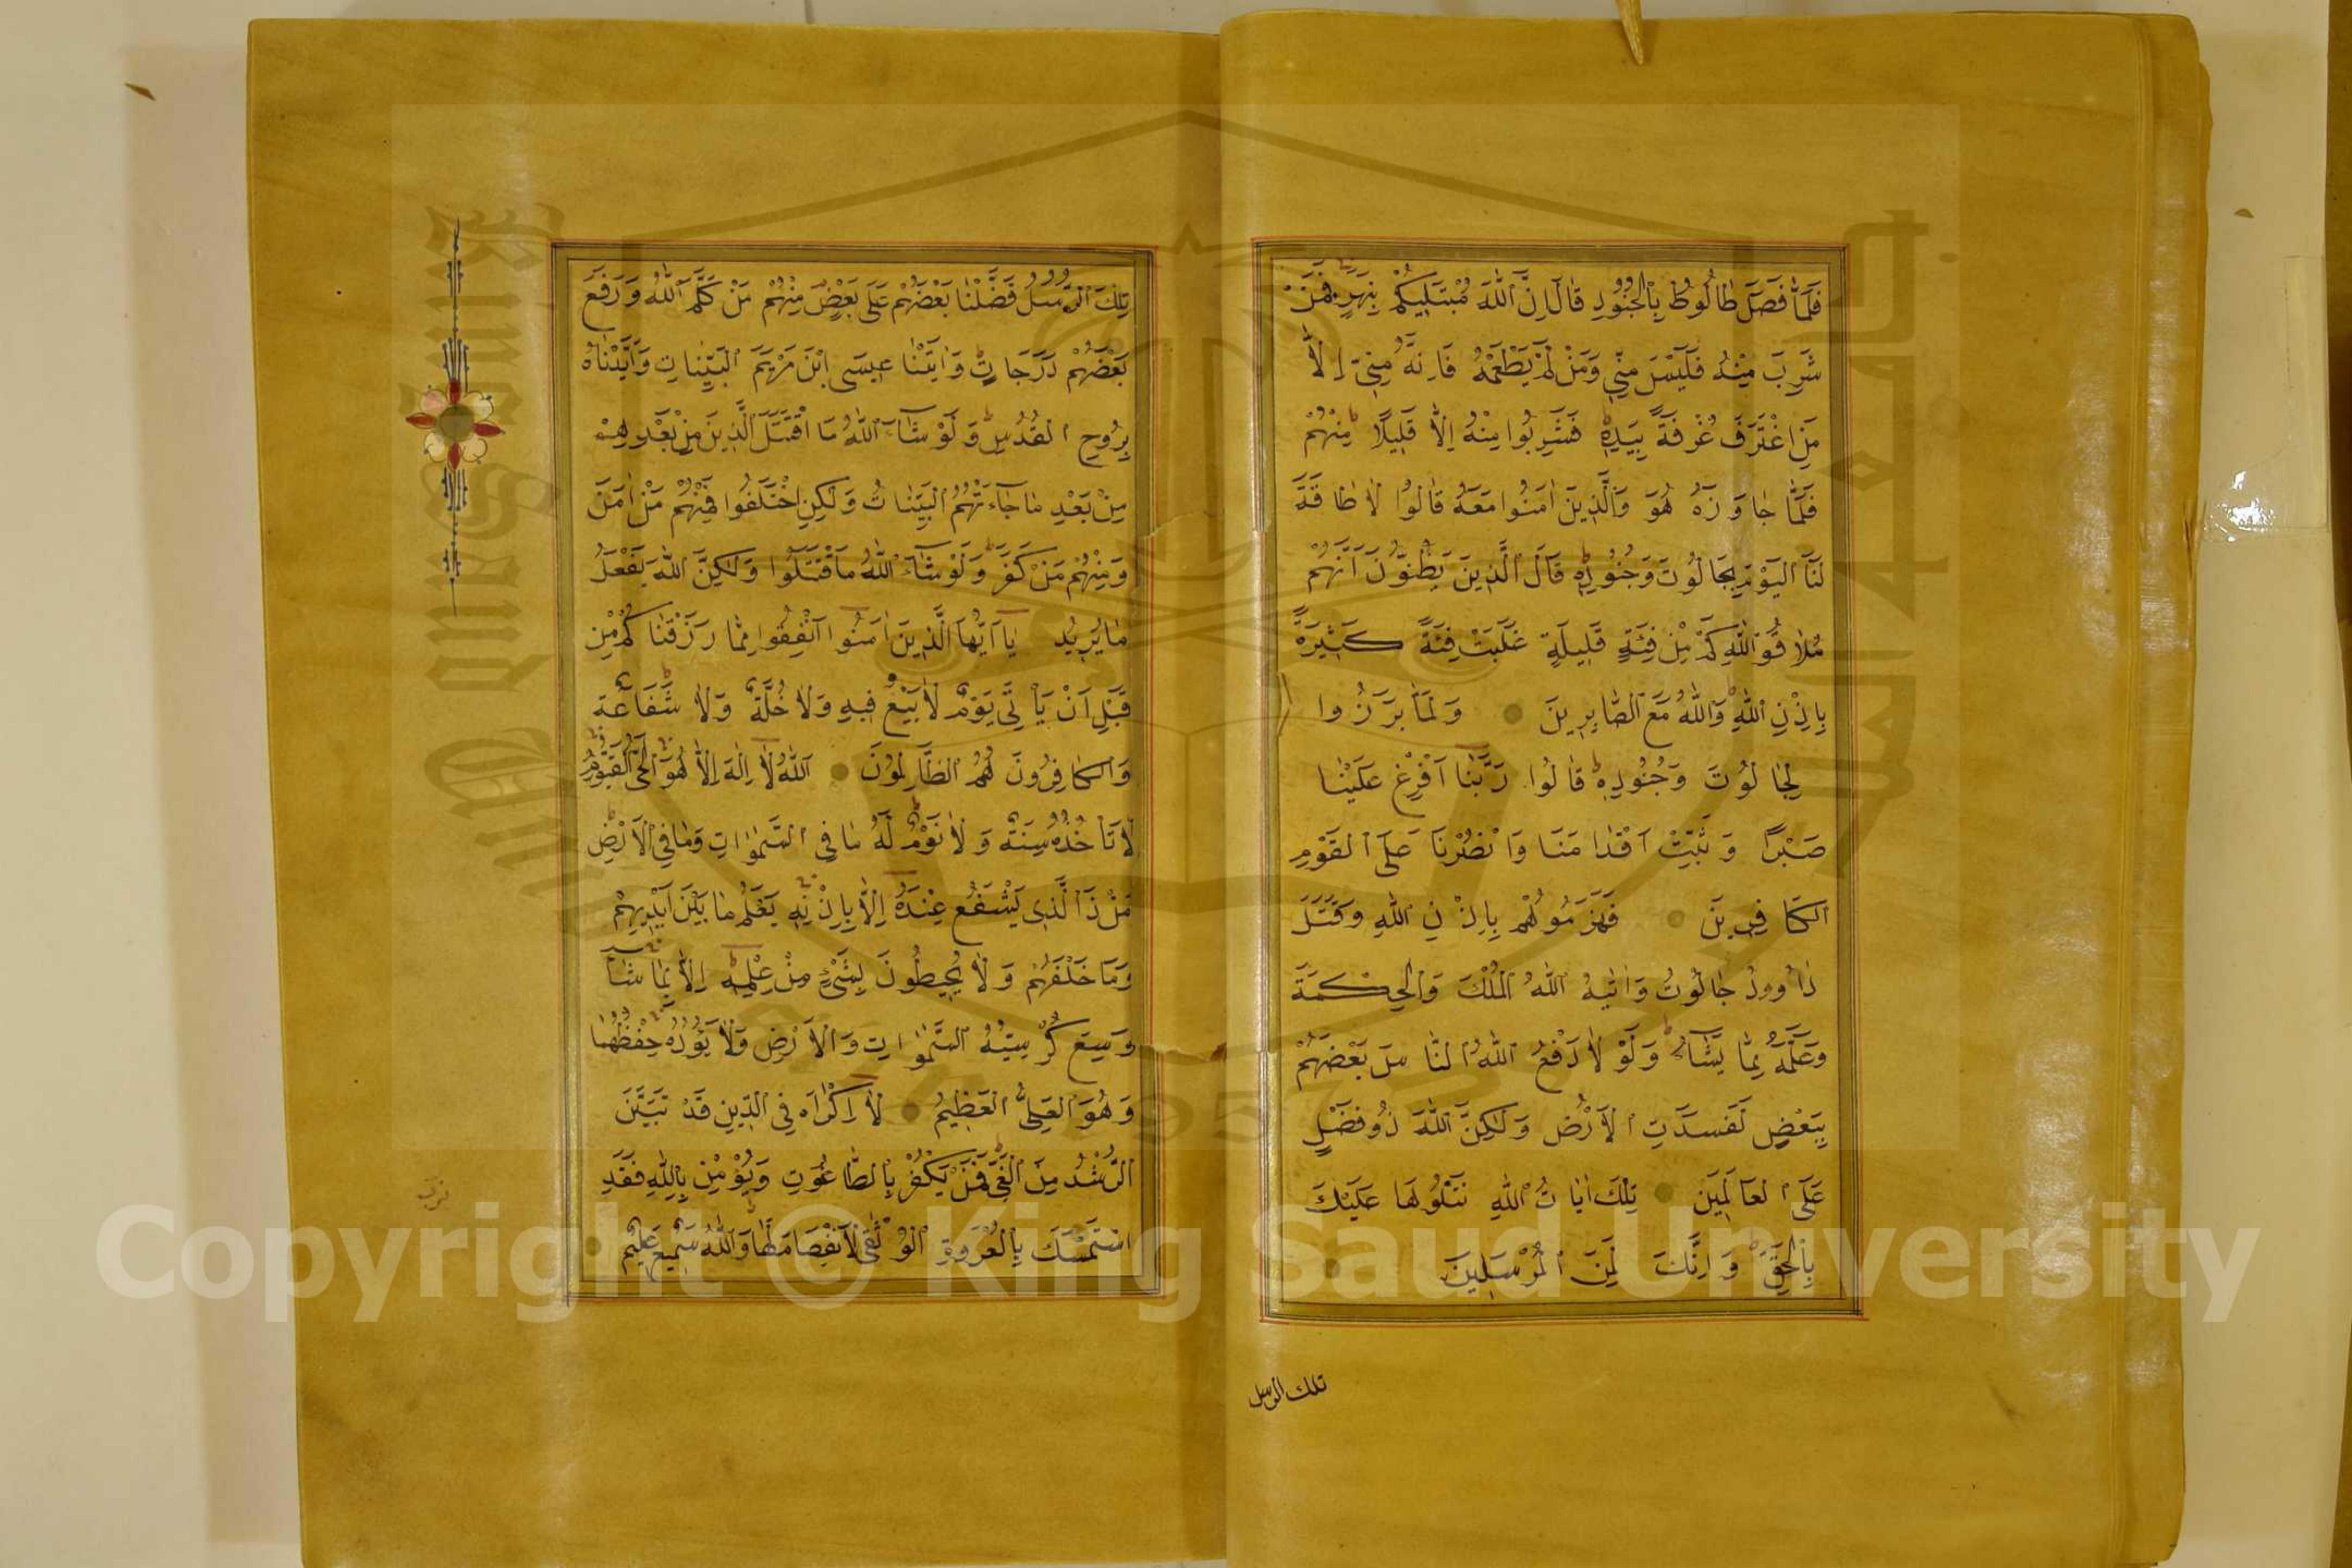 فَلَمَّا فَصَلَ طَالُوتُ بِالْجُنُودِ قَالَ اِنَّ اللّٰهَ مُبْتَلِيكُمْ بِنَهَرٍ فَمَنْ
شَرِبَ مِنْهُ فَلَيْسَ مِنّ۪ي وَمَنْ لَمْ يَطْعَمْهُ فَاِنَّهُ مِنّ۪ي اِلَّا
مَنِ اغْتَرَفَ غُرْفَةً بِيَدِهِ فَشَرِبُوا مِنْهُ اِلَّا قَلِيلًا مِنْهُمْ
فَلَمَّا جَاوَزَهُ هُوَ وَالَّذِينَ اٰمَنُوا مَعَهُ قَالُوا لَا طَاقَةَ
لَنَا الْيَوْمَ بِجَالُوتَ وَجُنُودِهِ قَالَ الَّذِينَ يَظُنُّونَ اَنَّهُمْ
مُلَاقُوا اللّٰهِ كَمْ مِنْ فِئَةٍ قَلِيلَةٍ غَلَبَتْ فِئَةً كَثِيرَةً
بِاِذْنِ اللّٰهِ وَاللّٰهُ مَعَ الصَّابِرِينَ وَلَمَّا بَرَزُوا
لِجَالُوتَ وَجُنُودِهِ قَالُوا رَبَّنَا اَفْرِغْ عَلَيْنَا
صَبْرًا وَثَبِّتْ اَقْدَامَنَا وَانْصُرْنَا عَلَى الْقَوْمِ
الْكَافِرِينَ فَهَزَمُوهُمْ بِاِذْنِ اللّٰهِ وَقَتَلَ
دَاوُودُ جَالُوتَ وَاٰتٰيهُ اللّٰهُ الْمُلْكَ وَالْحِكْمَةَ
وَعَلَّمَهُ مِمَّا يَشَاءُ وَلَوْلَا دَفْعُ اللّٰهِ النَّاسَ بَعْضَهُمْ
بِبَعْضٍ لَفَسَدَتِ الْاَرْضُ وَلٰكِنَّ اللّٰهَ ذُو فَضْلٍ
عَلَى الْعَالَمِينَ تِلْكَ اٰيَاتُ اللّٰهِ نَتْلُوهَا عَلَيْكَ
بِالْحَقِّ وَاِنَّكَ لَمِنَ الْمُرْسَلِينَ
تلك الرسل
تِلْكَ الرُّسُلُ فَضَّلْنَا بَعْضَهُمْ عَلَى بَعْضٍ مِنْهُمْ مَنْ كَلَّمَ اللّٰهُ وَرَفَعَ
بَعْضَهُمْ دَرَجَاتٍ وَاٰتَيْنَا عِيسَى ابْنَ مَرْيَمَ الْبَيِّنَاتِ وَاَيَّدْنَاهُ
بِرُوحِ الْقُدُسِ وَلَوْ شَاءَ اللّٰهُ مَا اقْتَتَلَ الَّذِينَ مِنْ بَعْدِهِمْ
مِنْ بَعْدِ مَا جَاءَتْهُمُ الْبَيِّنَاتُ وَلٰكِنِ اخْتَلَفُوا فَمِنْهُمْ مَنْ اٰمَنَ
وَمِنْهُمْ مَنْ كَفَرَ وَلَوْ شَاءَ اللّٰهُ مَا اقْتَتَلُوا وَلٰكِنَّ اللّٰهَ يَفْعَلُ
مَا يُرِيدُ يَا اَيُّهَا الَّذِينَ اٰمَنُوا اَنْفِقُوا مِمَّا رَزَقْنَاكُمْ مِنْ
قَبْلِ اَنْ يَأْتِيَ يَوْمٌ لَا بَيْعٌ فِيهِ وَلَا خُلَّةٌ وَلَا شَفَاعَةٌ
وَالْكَافِرُونَ هُمُ الظَّالِمُونَ اَللّٰهُ لَا اِلٰهَ اِلَّا هُوَ الْحَيُّ الْقَيُّومُ
لَا تَأْخُذُهُ سِنَةٌ وَلَا نَوْمٌ لَهُ مَا فِي السَّمٰوَاتِ وَمَا فِي الْاَرْضِ
مَنْ ذَا الَّذِي يَشْفَعُ عِنْدَهُ اِلَّا بِاِذْنِهِ يَعْلَمُ مَا بَيْنَ اَيْدِيهِمْ
وَمَا خَلْفَهُمْ وَلَا يُحِيطُونَ بِشَيْءٍ مِنْ عِلْمِهِ اِلَّا بِمَا شَاءَ
وَسِعَ كُرْسِيُّهُ السَّمٰوَاتِ وَالْاَرْضَ وَلَا يَؤُدُهُ حِفْظُهُمَا
وَهُوَ الْعَلِيُّ الْعَظِيمُ لَا اِكْرَاهَ فِي الدِّينِ قَدْ تَبَيَّنَ
الرُّشْدُ مِنَ الْغَيِّ فَمَنْ يَكْفُرْ بِالطَّاغُوتِ وَيُؤْمِنْ بِاللّٰهِ فَقَدِ
اسْتَمْسَكَ بِالْعُرْوَةِ الْوُثْقٰى لَا انْفِصَامَ لَهَا وَاللّٰهُ سَمِيعٌ عَلِيمٌ
Copyright © King Saud University
1957